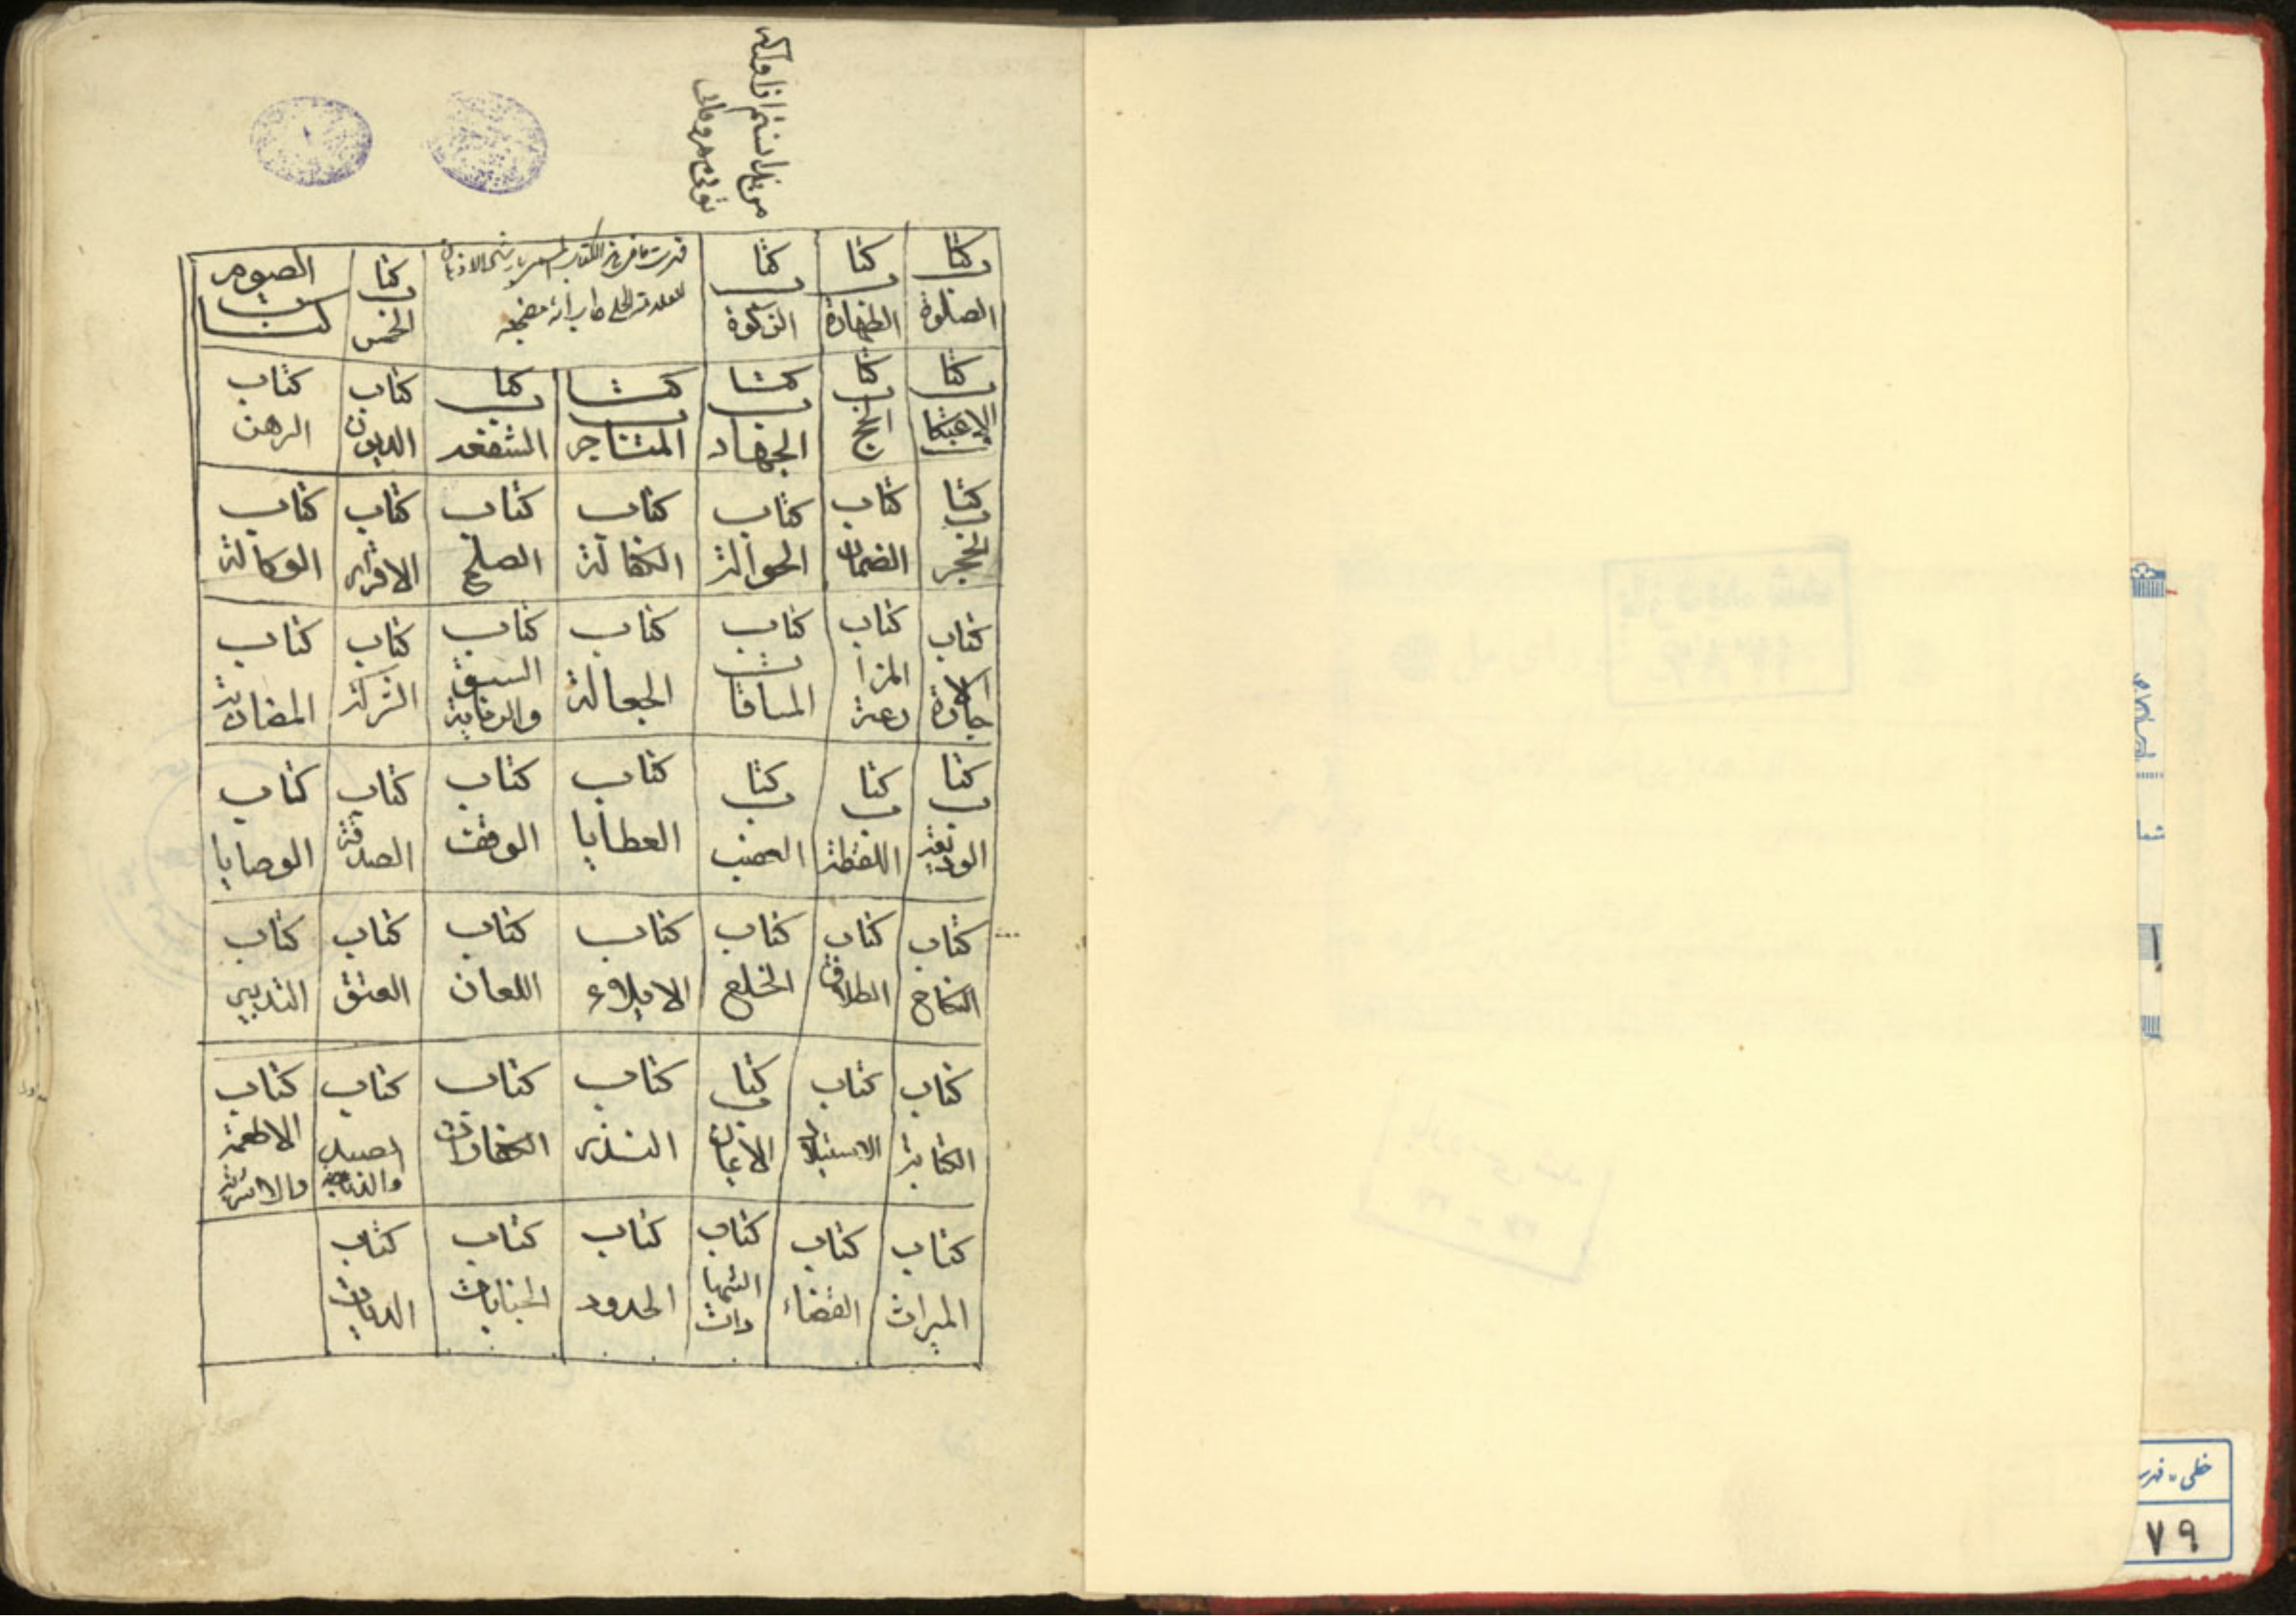 كتاب الصلوة
كتاب الطهارة
كتاب الزكوة
فهرست ما في هذا الكتاب ارشاد الاذهان
للعلامة الحلي طاب
كتاب الخمس
كتاب الصوم
كتاب الاعتكا
كتاب الحج
كتاب الجهاد
كتاب المتاجر
كتاب الشفعه
كتاب الديون
كتاب الرهن
كتاب الحجر
كتاب الضمان
كتاب الحوالة
كتاب الكفالة
كتاب الصلح
كتاب الاقرار
كتاب الوكالة
كتاب الاجارة
كتاب المزارعة
كتاب المساقات
كتاب الجعالة
كتاب السبق والرماية
كتاب الشركة
كتاب المضاربة
كتاب الوديعة
كتاب اللقطة
كتاب الغصب
كتاب العطايا
كتاب الوقف
كتاب الصدقة
كتاب الوصايا
كتاب النكاح
كتاب الطلاق
كتاب الخلع
كتاب الايلاء
كتاب اللعان
كتاب العتق
كتاب التدبير
كتاب الكتابة
كتاب الاستيلاد
كتاب الايمان
كتاب النذر
كتاب الكفارات
كتاب الصيد والذباحة
كتاب الاطعمة والاشربة
كتاب الميراث
كتاب القضاء
كتاب الشهادات
كتاب الحدود
كتاب الجنايات
كتاب الديات
خطی - فهرست
٧٩